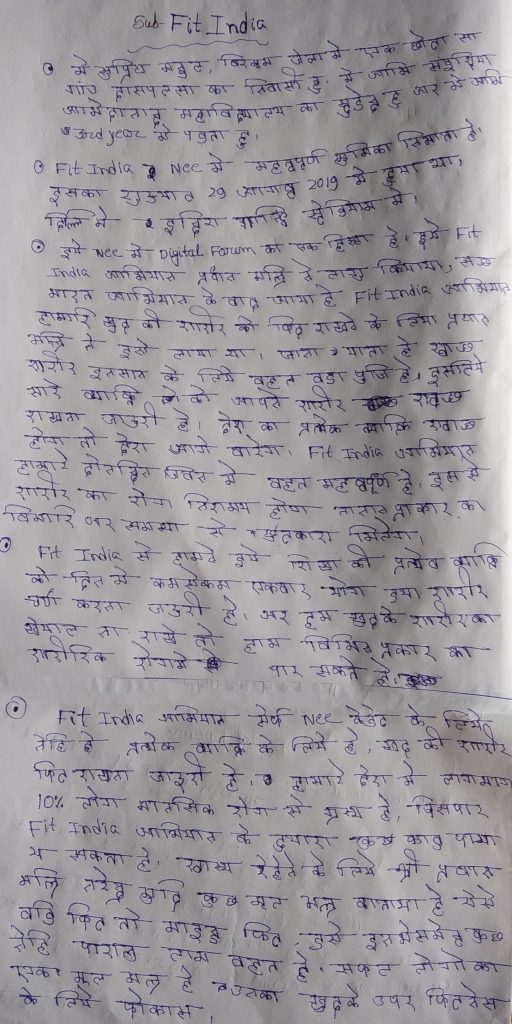 Sub- Fit India
मे सुप्रिय महुट, विक्रम जेला मे एक छोटा सा
गांव का निवासी हु. मे
महाविद्यालय का हु और मे
3rd year मे पढ़ता हु.
Fit India Ncc मे महत्वपूर्ण भुमिका निभाता है.
इसका शुरुयात 29 आगष्ट 2019 मे हुया था,
दिल्लि मे इन्दिरा गान्धि स्टेडियाम मे,
इये Ncc मे Digital Forum का एक हिस्सा है. इये Fit
India आभियान प्रधान मन्त्रि ने चालु कियाथा, स्वच्छ
भारत आभियान के बाद आया है Fit India आभियान
हामारि खुद की शारीर को फिट राखने के लिया प्रधान
मन्त्रि ने इसे लाया था. जाना याता है स्वच्छ
शारीर इनसान के लिये बहत बडा पुंजि है. इसलिये
सारे ब्याक्ति को आपने शारीर स्वच्छ
राखना जारुरी है. देश का प्रत्येक ब्याक्ति स्वाच्छ
होगा तो देश आगे बाढेगा. Fit India आभियान
हामारे दैनन्दिन जिवन मे बहत महत्वपूर्ण है. इस से
शारीर का रोग निरामय होगा नाना प्राकार का
बिमारि और समस्या से छुटकारा मिलेगा,
Fit India से हामने इये सिखा की प्रत्येक ब्याक्ति
को दिन मे कमसेकम एकबार योग इया शारीर
चर्चा करना जारुरी है. और हम खुद के शारीर का
खेयाल ना राखे तो हाम बिभिन्न प्रकार का
शारीरिक रोगमे पार सकते है.
Fit India आभियान सेर्फ Ncc केडेट के लिये
नेहि है प्रत्येक ब्याक्ति के लिये है, खुद की शारीर
फिट राखना जारुरी है. हामारे देश मे लागभाग
10% लोग मानसिक रोग से ग्रस्थ है, जिसपार
Fit India आभियान के द्वारा काबु पाया
य सकता है. स्वास्थ रेहेने के लिये श्री प्रधान
मन्त्रि नरेन्द्र मुदि कुछ मुल मन्त्र बानाया है जेसे
बडि फिट तो माइन्ड फिट. इसे कुछ
नेहि पारन्तु लाभ बहत है. सफल लोगो का
एक मुल मन्त्र है उनका खुदके उपर फिटनेस
के लिये फोकास,